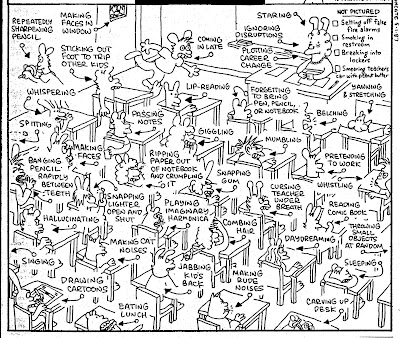 REPEATEDLY
SHARPENING
PENCIL
MAKING
FACES IN
WINDOW
STICKING OUT
FOOT TO TRIP
OTHER KIDS
COMING
IN LATE
STARING
IGNORING
DISRUPTIONS
PLOTTING
CAREER
CHANGE
NOT PICTURED
Setting off false
fire alarms
Smoking in
restroom
Breaking into
lockers
Smearing teachers
car with peanut butter
WHISPERING
LIP-READING
FORGETTING
TO BRING
PEN, PENCIL,
OR NOTEBOOK
YAWNING
& STRETCHING
SPITTING
PASSING
NOTES
BELCHING
GIGGLING
MUMBLING
MAKING
FACES
RIPPING
PAPER OUT
OF NOTEBOOK
AND CRUMPLING
IT
PRETENDING
TO WORK
BANGING
PENCIL
RAPIDLY
BETWEEN
TEETH
SNAPPING
GUM
WHISTLING
SNAPPING
LIGHTER
OPEN AND
SHUT
CURSING
TEACHER
UNDER
BREATH
READING
COMIC BOOK
HALLUCINATING
PLAYING
IMAGINARY
HARMONICA
COMBING
HAIR
THROWING
SMALL
OBJECTS
AT RANDOM
MAKING CAT
NOISES
DAYDREAMING
SINGING
JABBING
KID'S
BACK
MAKING
RUDE
NOISES
SLEEPING
DRAWING
CARTOONS
EATING
LUNCH
CARVING UP
DESK